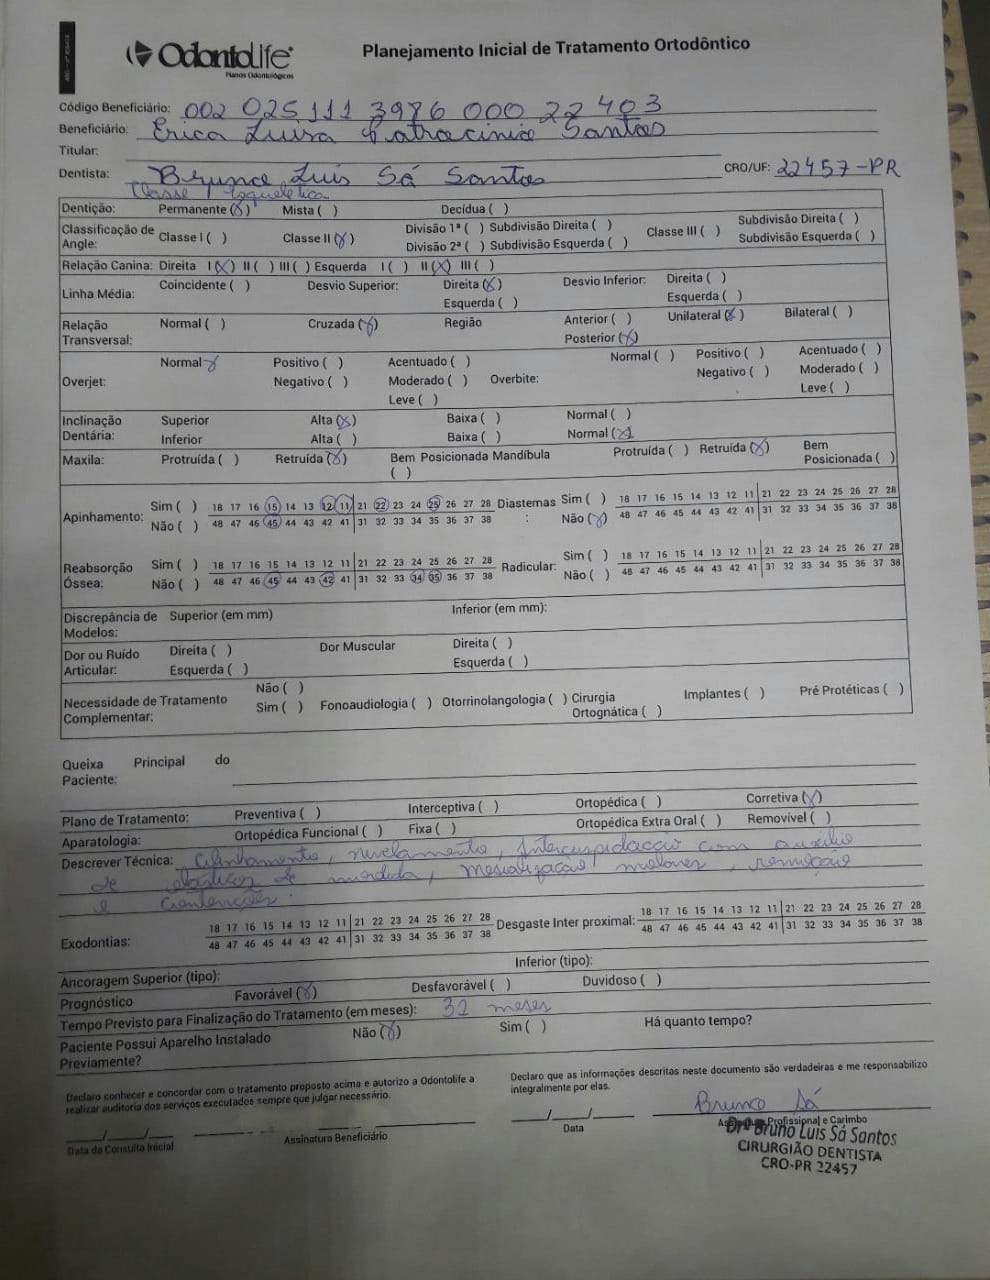 OdontoLife
Planos Odontológicos
Planejamento Inicial de Tratamento Ortodôntico
Código Beneficiário: 002 025 111 3986 000 22 403
Beneficiário: Erica Luisa Patrocinio Santos
Titular:
Dentista: Bruno Luis Sá Santos CRO/UF: 22457-PR
Classe I esqueletica
Dentição: Permanente (X) Mista ( ) Decídua ( )
Classificação de Angle: Classe I ( ) Classe II (X) Divisão 1ª ( ) Subdivisão Direita ( ) Classe III ( ) Subdivisão Direita ( )
Divisão 2ª ( ) Subdivisão Esquerda ( ) Subdivisão Esquerda ( )
Relação Canina: Direita I (X) II ( ) III ( ) Esquerda I ( ) II (X) III ( )
Linha Média: Coincidente ( ) Desvio Superior: Direita (X) Desvio Inferior: Direita ( )
Esquerda ( ) Esquerda ( )
Relação Transversal: Normal ( ) Cruzada (X) Região Anterior ( ) Unilateral (X) Bilateral ( )
Posterior (X)
Overjet: Normal X Positivo ( ) Acentuado ( ) Overbite: Normal ( ) Positivo ( ) Acentuado ( )
Negativo ( ) Moderado ( ) Negativo ( ) Moderado ( )
Leve ( ) Leve ( )
Inclinação Dentária: Superior Alta (X) Baixa ( ) Normal ( )
Inferior Alta ( ) Baixa ( ) Normal (X)
Maxila: Protruída ( ) Retruída (X) Bem Posicionada ( ) Mandíbula Protruída ( ) Retruída (X) Bem Posicionada ( )
Apinhamento: Sim ( ) 18 17 16 15 14 13 12 11 21 22 23 24 25 26 27 28 Diastemas: Sim ( ) 18 17 16 15 14 13 12 11 21 22 23 24 25 26 27 28
Não ( ) 48 47 46 45 44 43 42 41 31 32 33 34 35 36 37 38 Não (X) 48 47 46 45 44 43 42 41 31 32 33 34 35 36 37 38
Reabsorção Óssea: Sim ( ) 18 17 16 15 14 13 12 11 21 22 23 24 25 26 27 28 Radicular: Sim ( ) 18 17 16 15 14 13 12 11 21 22 23 24 25 26 27 28
Não ( ) 48 47 46 45 44 43 42 41 31 32 33 34 35 36 37 38 Não ( ) 48 47 46 45 44 43 42 41 31 32 33 34 35 36 37 38
Discrepância de Modelos: Superior (em mm) Inferior (em mm):
Dor ou Ruído Articular: Direita ( ) Dor Muscular Direita ( )
Esquerda ( ) Esquerda ( )
Necessidade de Tratamento Complementar: Não ( )
Sim ( ) Fonoaudiologia ( ) Otorrinolangologia ( ) Cirurgia Ortognática ( ) Implantes ( ) Pré Protéticas ( )
Queixa Principal do Paciente:
Plano de Tratamento: Preventiva ( ) Interceptiva ( ) Ortopédica ( ) Corretiva (X)
Aparatologia: Ortopédica Funcional ( ) Fixa ( ) Ortopédica Extra Oral ( ) Removível ( )
Descrever Técnica: Alinhamento, nivelamento, Intercuspidacao com auxilio
de elasticos de mordida, mesialização molares, remoção
e contenções.
Exodontias: 18 17 16 15 14 13 12 11 21 22 23 24 25 26 27 28 Desgaste Inter proximal: 18 17 16 15 14 13 12 11 21 22 23 24 25 26 27 28
48 47 46 45 44 43 42 41 31 32 33 34 35 36 37 38 48 47 46 45 44 43 42 41 31 32 33 34 35 36 37 38
Ancoragem Superior (tipo): Inferior (tipo):
Prognóstico Favorável (X) Desfavorável ( ) Duvidoso ( )
Tempo Previsto para Finalização do Tratamento (em meses): 32 meses
Paciente Possui Aparelho Instalado Previamente? Não (X) Sim ( ) Há quanto tempo?
Declaro conhecer e concordar com o tratamento proposto acima e autorizo a Odontolife a
realizar auditoria dos serviços executados sempre que julgar necessário.
Declaro que as informações descritas neste documento são verdadeiras e me responsabilizo
integralmente por elas.
Bruno Sá
Data da Consulta Inicial Assinatura Beneficiário Data Assinatura Profissional e Carimbo
Dr. Bruno Luis Sá Santos
CIRURGIÃO DENTISTA
CRO-PR 22457